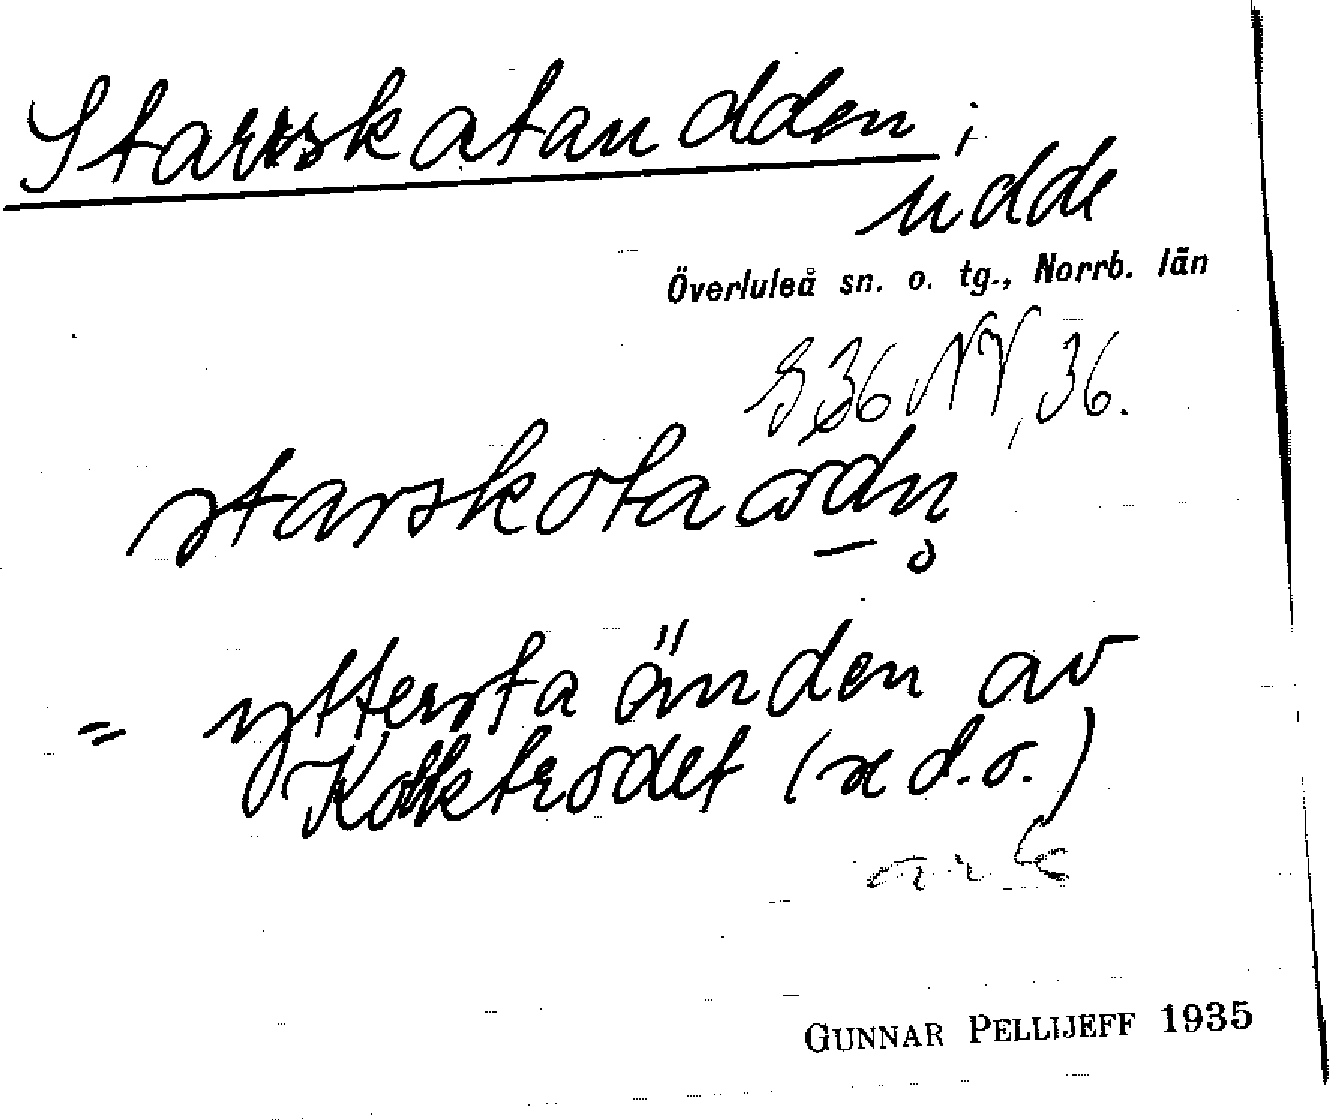 Starrskataudden,
udde
Överluleå sn. o. tg., Norrb. län
S 36 NV, 36.
starskota
= yttersta änden av
(se d.o.)
GUNNAR PELLIJEFF 1935